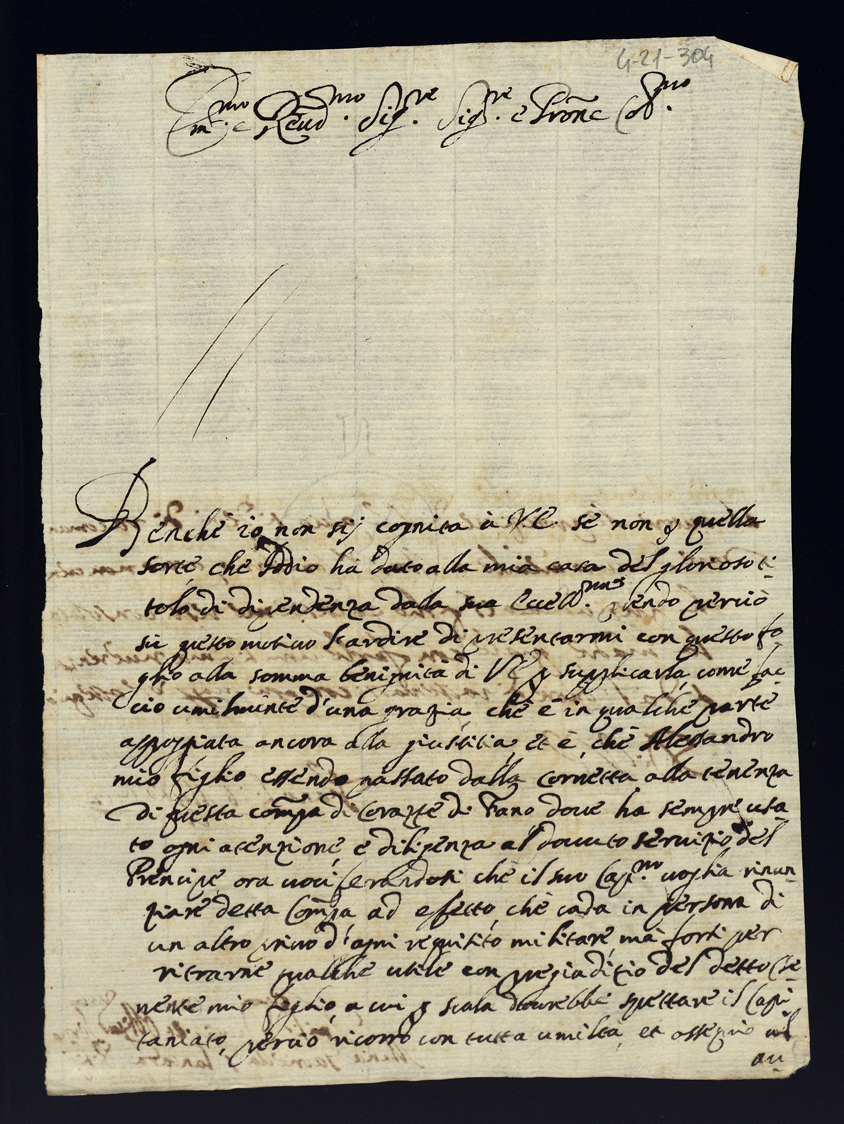 4-21-304
Em.mo e Reud.mo Sig.re Sig.re e Pron̄e Col.mo
Benche io non sij cognita à V.E. se non p quella
sorte che Iddio ha dato alla mia casa del glorioso ti-
tolo di dipendenza dalla sua Eccell.ma prendo perciò
sù questo motivo l'ardire di presentarmi con questo fo
glio alla somma benignità di V.E. p supplicarla, come fac
cio umilmente d'una grazia, che è in qualche parte
appoggiata ancora alla giustitia, et è, che Alessandro
mio figlio essendo passato dalla Cornetta alla tenenza
di questa comp̃a di Corazze di Fano doue ha sempre usa
to ogni atenzione, e diligenza al douuto seruizio del
Prencipe ora uociferandosi che il suo Cap.no uoglia rinun
ziare detta Comp̃a ad effetto, che cada in persona di
un altro priuo d'ogni requisito militare mà forsi per
ritrarne qualche utile con pregiuditio del detto Te-
nente mio figlio, a cui p scala dourebbe spettare il Capi
taniato, perciò ricorro con tutta umiltà, et ossequio al
au